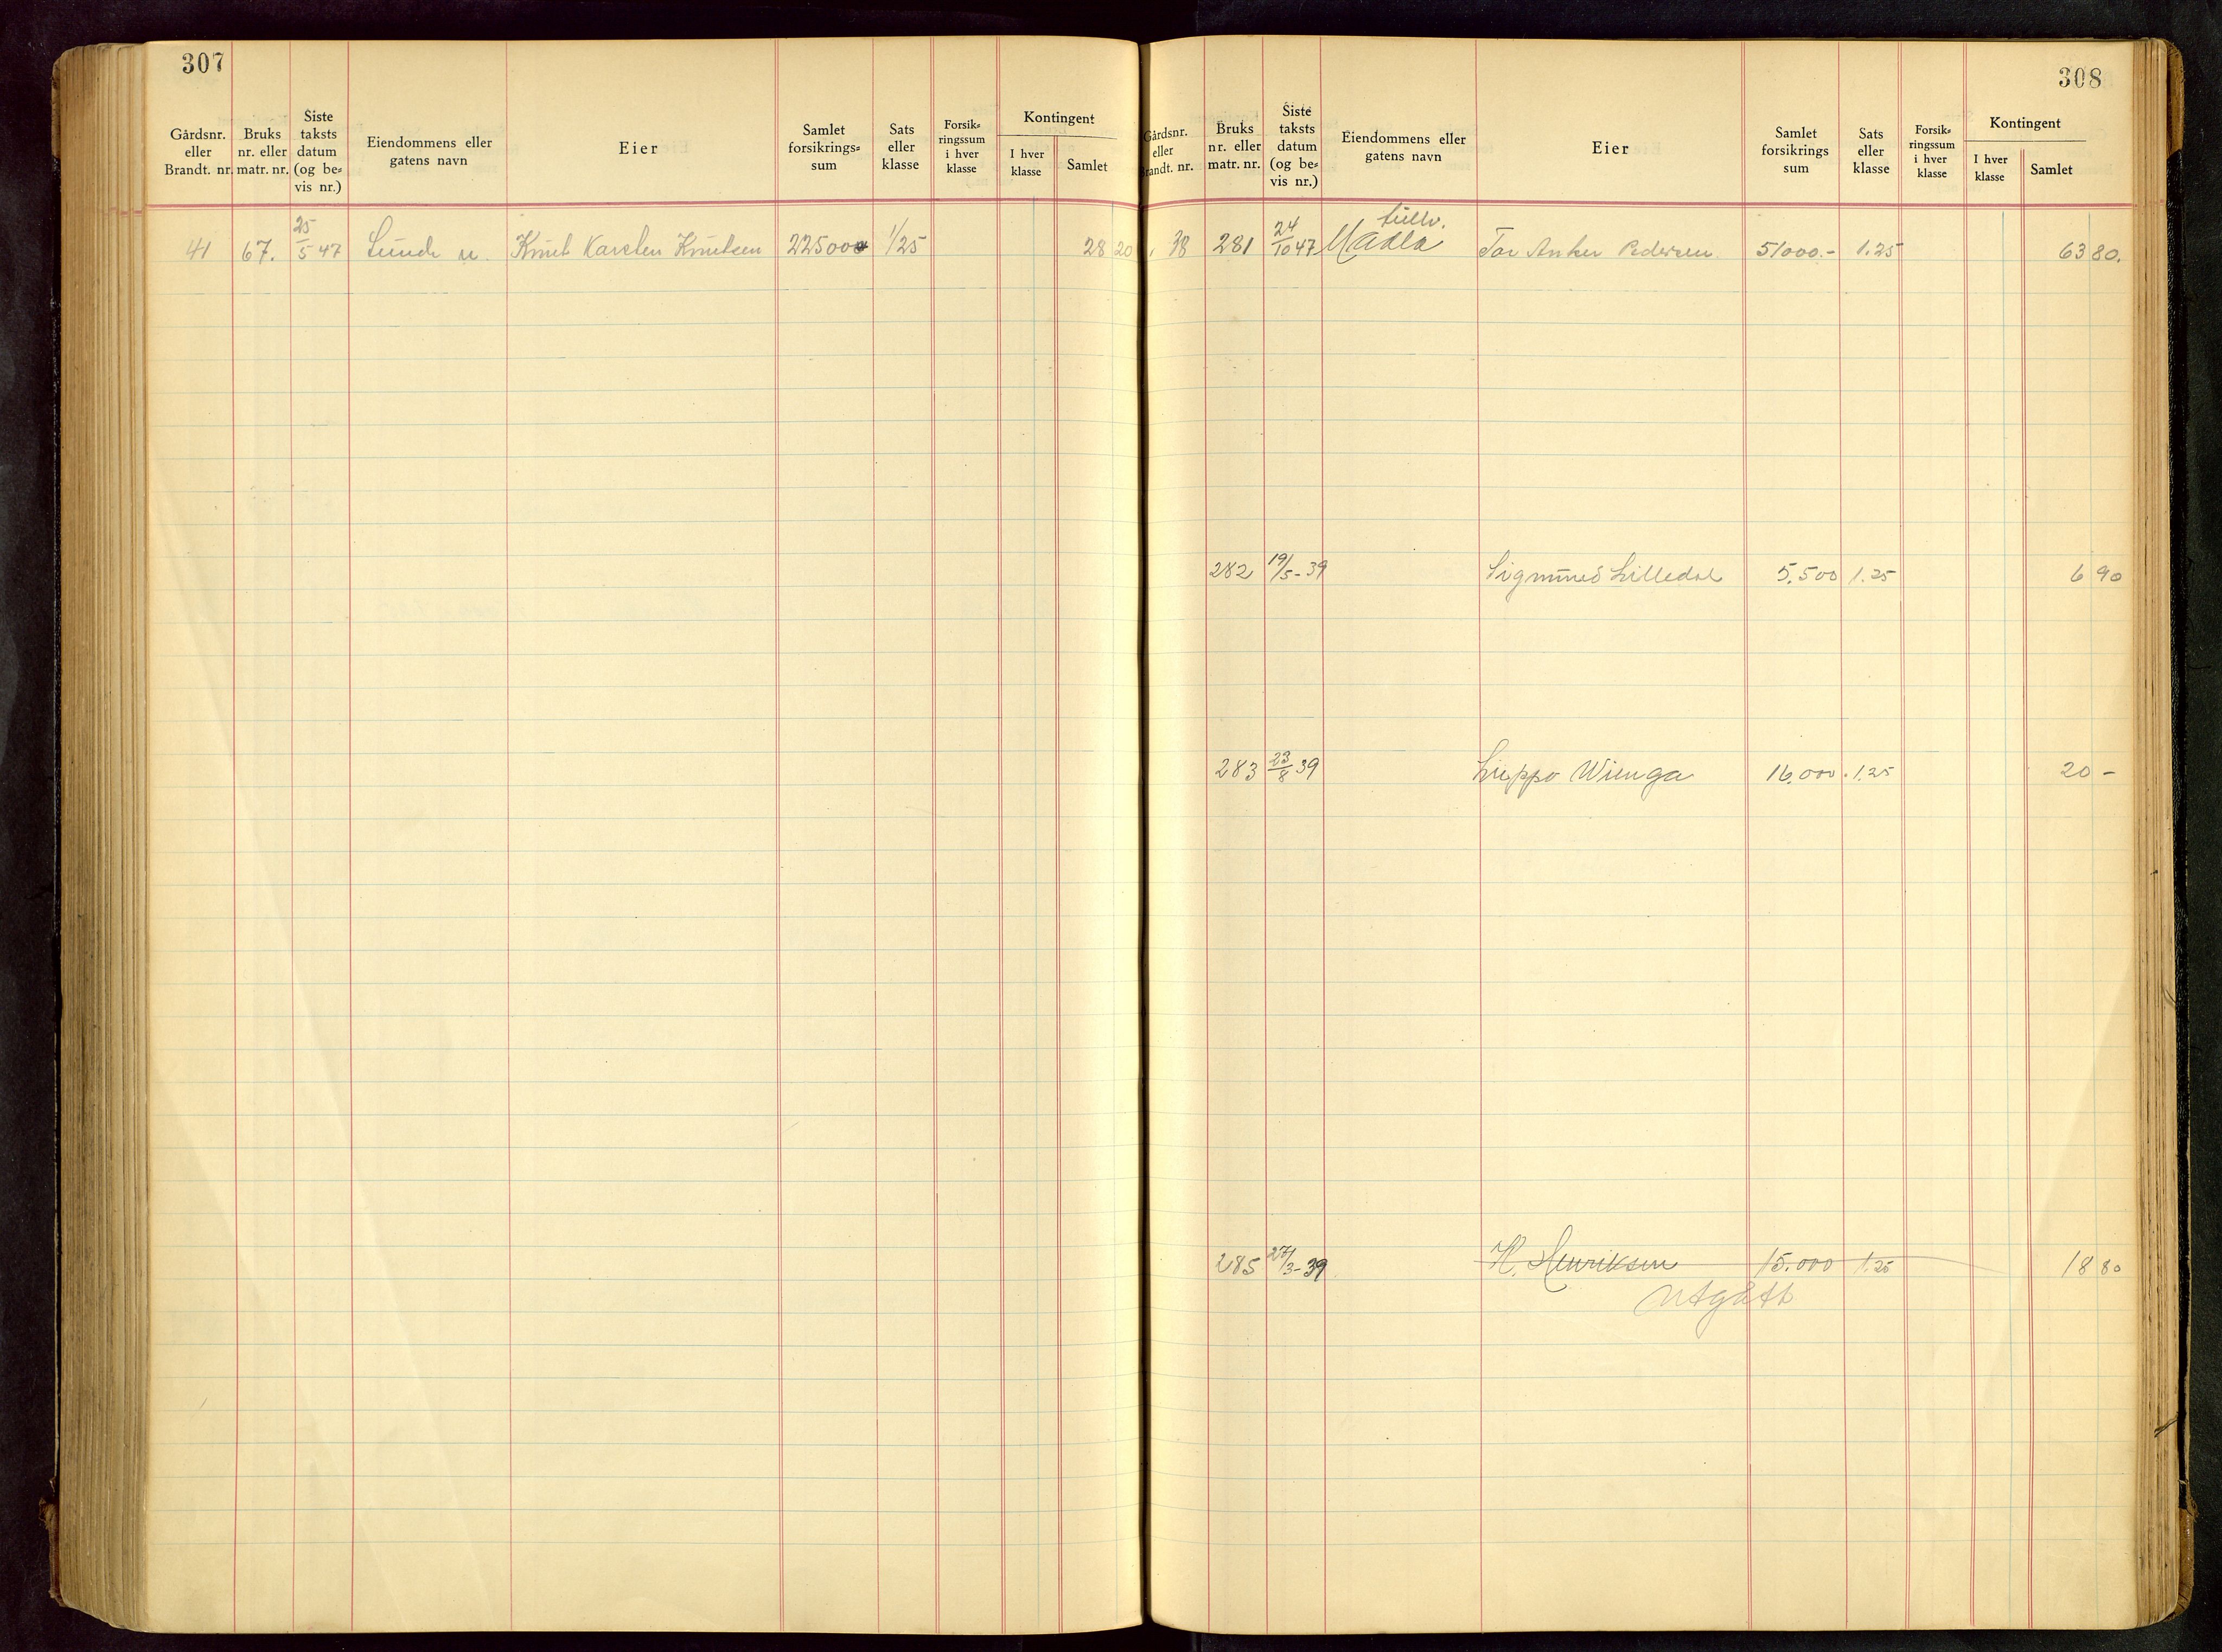 307
Gårdsnr. eller Brandt. nr. Bruks nr. eller matr. nr. Siste taksts datum (og be= vis nr.) Eiendommens eller gatens navn Eier Samlet forsikrings= sum Sats eller klasse Forsik= ringssum i hver klasse Kontingent I hver klasse Samlet
41 67. 25/5 47 Lunde n. Knut Karsten Knutsen 22500 1/25 28 20
308
Gårdsnr. eller Brandt. nr. Bruks nr. eller matr. nr. Siste taksts datum (og be= vis nr.) Eiendommens eller gatens navn Eier Samlet forsikrings sum Sats eller klasse Forsik= ringssum i hver klasse Kontingent I hver klasse Samlet
38 281 24/10 47 Madla Tor Anker Pedersen 51000.- 1.25 63 80.
282 19/5-39 Sigmund Lilledal 5.500 1.25 6 90
283 23/8 39 Luppo Wienga 16.000. 1.25 20 -
285 27/3-39 H. Henriksen 15.000 1.25 18 80
Utgått